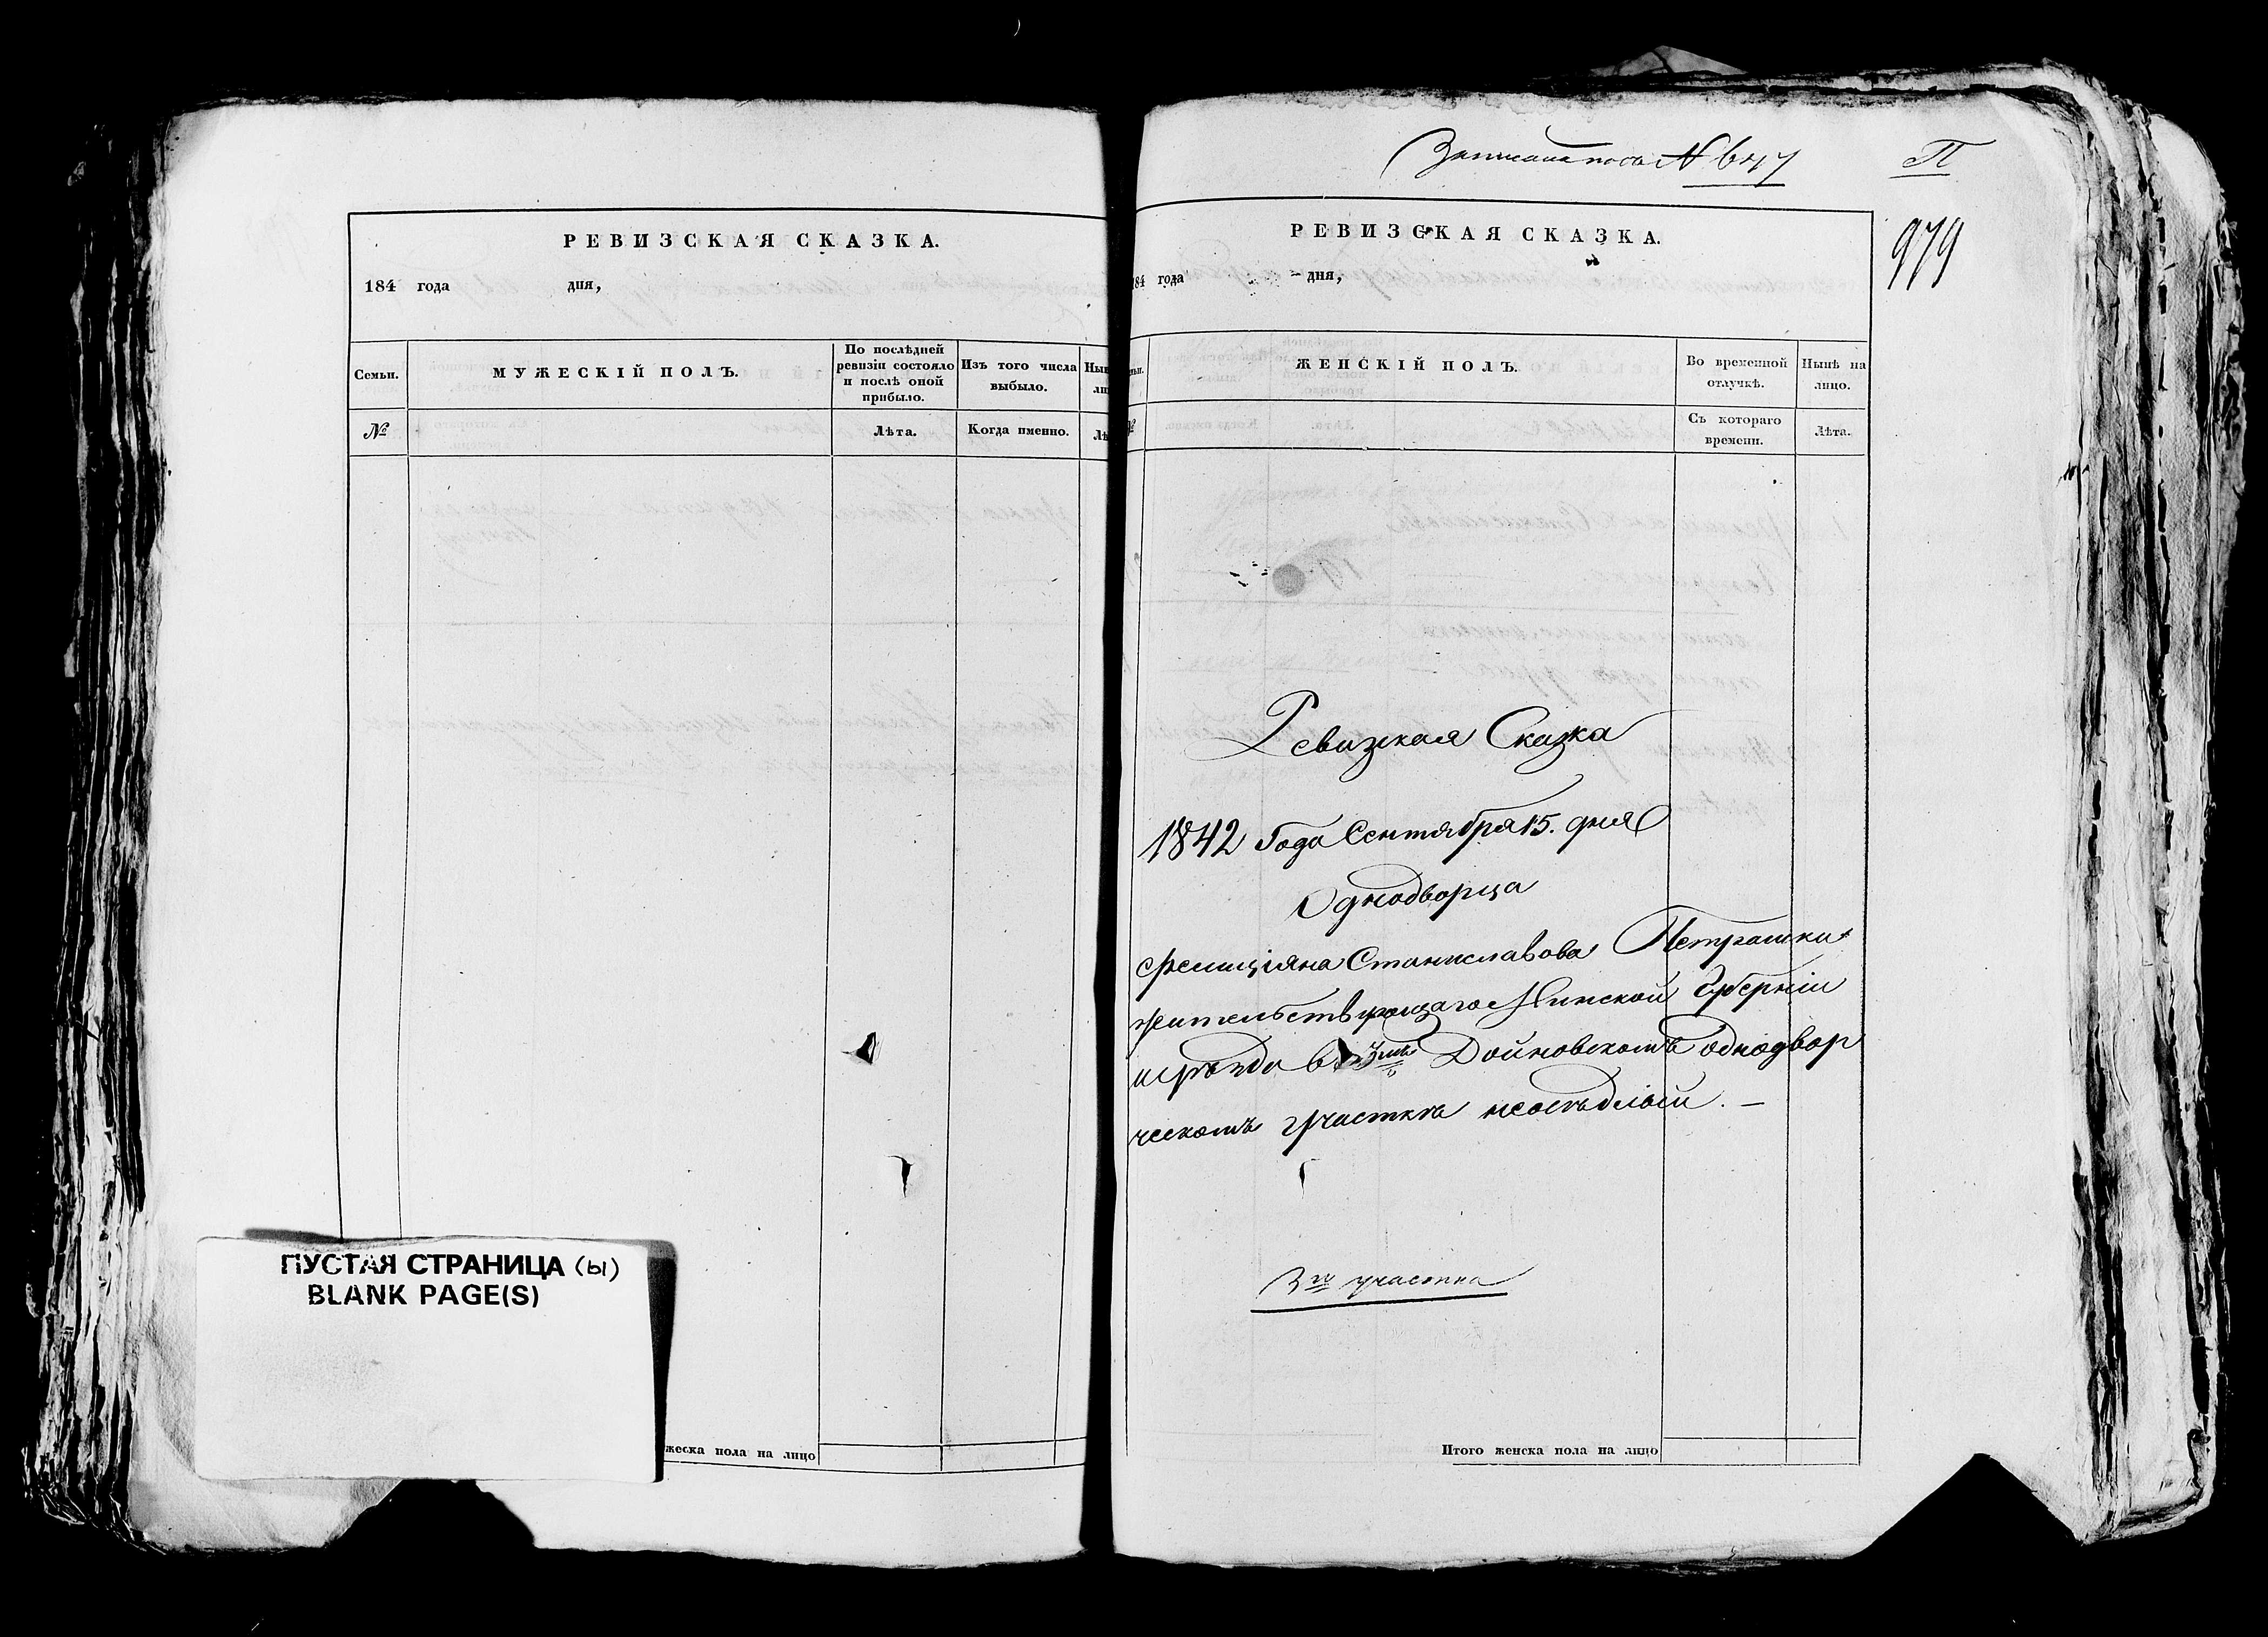 РЕВИЗСКАЯ СКАЗКА.
184 года дня,
Семьи.
МУЖЕСКІЙ ПОЛЪ.
По послѣдней ревизіи состояло и послѣ оной прибыло.
Изъ того числа выбыло.
№
Лѣта.
Когда именно.
ПУСТАЯ СТРАНИЦА (ы)
BLANK PAGE(S)
жеска пола на лицо
Записана подъ N 647
П
979
РЕВИЗСКАЯ СКАЗКА.
184 года дня,
ЖЕНСКІЙ ПОЛЪ.
Во временной отлучкѣ.
Нынѣ на лицо.
Съ котораго времени.
Лѣта.
Ревизская Сказка
1842 Года Сентября 15. дня
Однодворца
Фелиціяна Станиславова Петрашки
жительствующаго Минской Губерніи
и уѣзда въ 3мъ Войновскомъ однодвор
ческомъ участкѣ неосѣдлый. —
3го участка
Итого женска пола на лицо